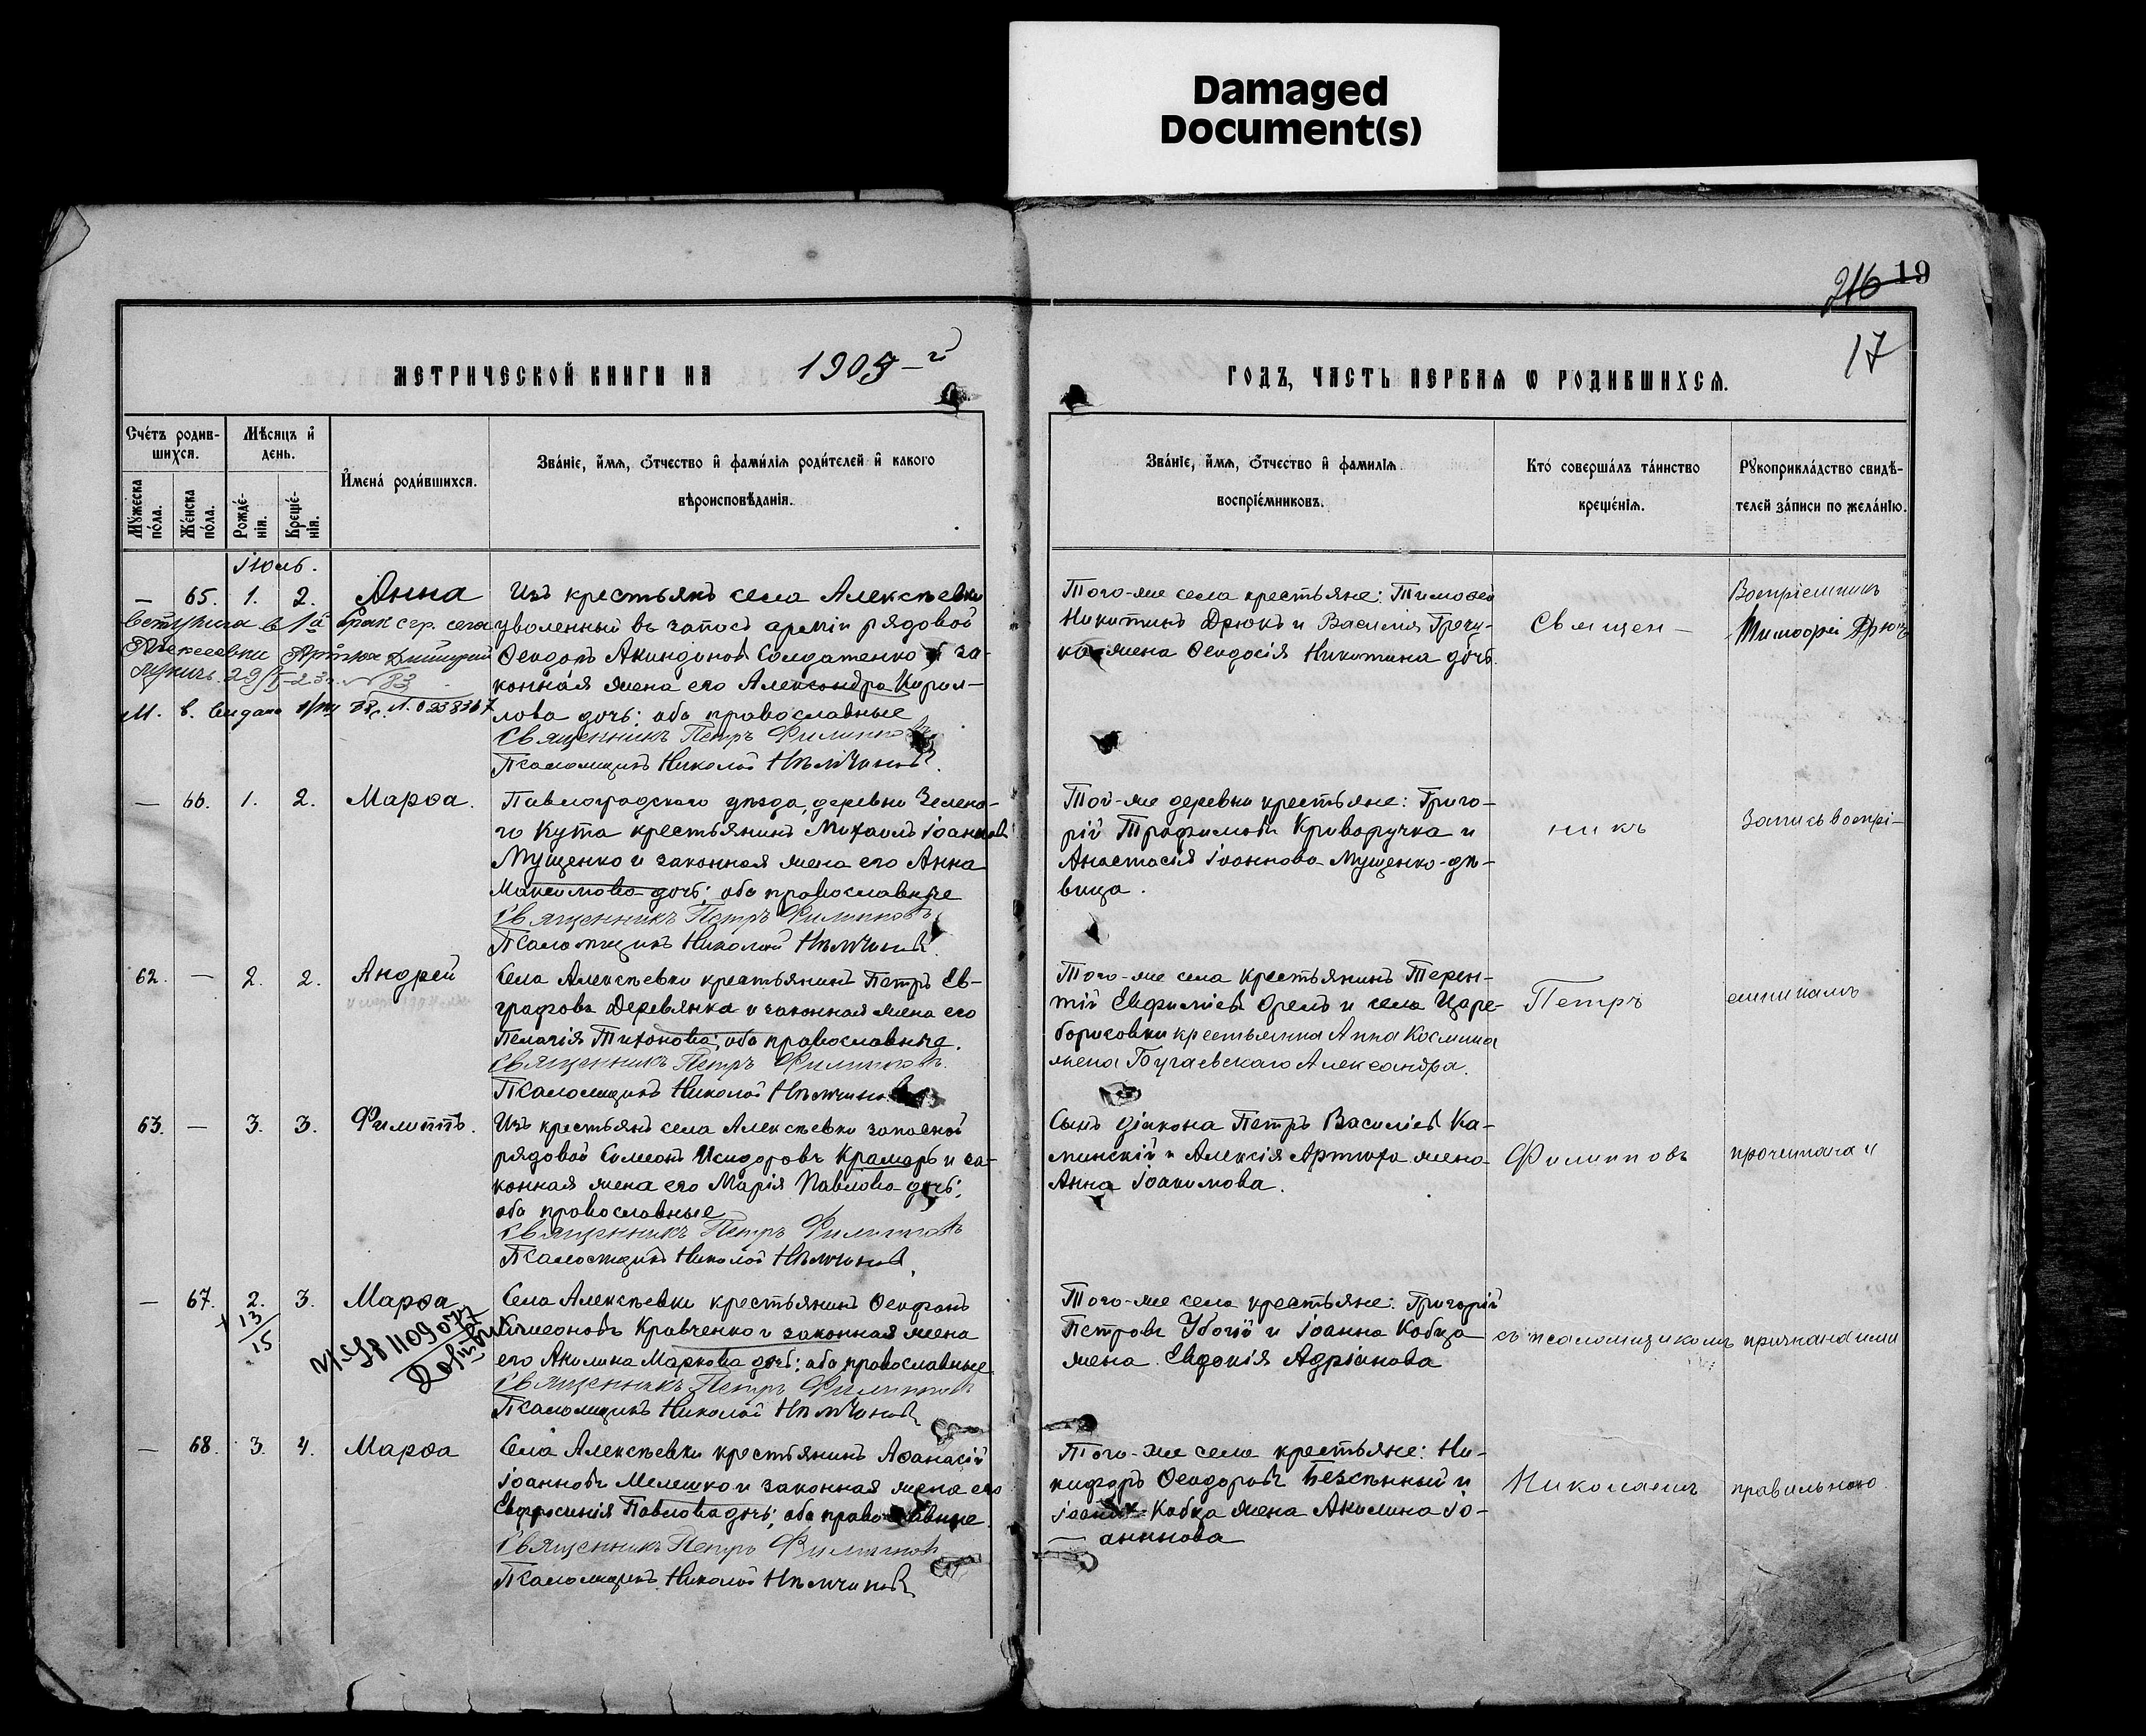 Damaged
Document(s)
216 19
17
МЕТРИЧЕСКОЙ КНИГИ НА 1905-й
ГОДЪ, ЧАСТЬ ПЕРВАЯ Ѡ РОДИВШИХСѦ.
Счéтъ родив-
шихся.
Мѣсяцъ и҆
день.
Мꙋ́жеска пóла.
Жéнска пóла.
Рождé-
нія.
Крещé-
нія.
И҆менá роди́вшихся.
Звáнїе, и҆́мѧ, ѻ҆́тчество и҆ фами́лїѧ роди́телей и҆ какого
вѣроисповѣ́данїѧ.
Звáнїе, и҆́мѧ, ѻ҆́тчество и҆ фами́лїѧ
воспрїéмниковъ.
Ктó совершáлъ тáинство
крещéнїѧ.
Рꙋкоприклáдство свидѣ́-
телей зáписи по желáнїю.
Іюль.
— 65. 1. 2. Анна
Изъ крестьянъ села Алексѣевки
уволенный въ запасъ арміи рядовой
Ѳеодоръ Акиндиновъ Солдатенко и за-
конная жена его Александра Кирил-
лова дочь; оба православные
Священникъ Петръ Филипповъ
Псаломщикъ Николай Нѣмчиновъ.
Вступила в 1й брак с гр. села
Алексеевки Артюх Дмитрий
М. в. выдано
Того-же села крестьяне: Тимоѳей
Никитинъ Дрюкъ и Василія Гречи-
ка жена Ѳеодосія Никитина дочь.
Священ-
Воспріемникъ
Тимофей Дрюкъ
— 66. 1. 2. Марѳа.
Павлоградскаго уѣзда, деревни Зелена-
го Кута крестьянинъ Михаилъ Іоанновъ
Мущенко и законная жена его Анна
Максимова дочь; оба православные
Священникъ Петръ Филипповъ
Псаломщикъ Николай Нѣмчиновъ.
Той-же деревни крестьяне: Григо-
рій Трофимовъ Криворучка и
Анастасія Іоаннова Мущенко-дѣ-
вица.
никъ
Запись воспрі-
62. — 2. 2. Андрей
Села Алексѣевки крестьянинъ Петръ Ев-
графовъ Деревянка и законная жена его
Пелагія Тихонова; оба православные.
Священникъ Петръ Филипповъ.
Псаломщикъ Николай Нѣмчиновъ
Того-же села крестьянинъ Терен-
тій Евфиміевъ Орелъ и села Царе-
борисовки крестьянина Анна Космина
жена Бугаевскаго Александра.
Петръ
емникамъ
63. — 3. 3. Филиппъ.
Изъ крестьянъ села Алексѣевки запасной
рядовой Симеонъ Исидоровъ Крамарь и за-
конная жена его Марія Павлова дочь;
оба православные
Священникъ Петръ Филипповъ
Псаломщикъ Николай Нѣмчиновъ.
Сынъ діакона Петръ Василіевъ Ка-
минскій и Алексія Артюха жена
Анна Іоакимова.
Филипповъ
прочитана и
— 67. 2. 3. Марѳа
13
15
Села Алексѣевки крестьянинъ Ѳеофанъ
Симеоновъ Кравченко и законная жена
его Акилина Маркова дочь; оба православные
Священникъ Петръ Филипповъ
Псаломщикъ Николай Нѣмчиновъ
Того-же села крестьяне: Григорій
Петровъ Убогій и Іоанна Кобца
жена Евдокія Адріанова
съ псаломщикомъ
признана ими
— 68. 3. 4. Марѳа
Села Алексѣевки крестьянинъ Аѳанасій
Іоанновъ Мелешко и законная жена его
Евфросинія Павлова дочь; оба православные.
Священникъ Петръ Филипповъ
Псаломщикъ Николай Нѣмчиновъ
Того-же села крестьяне: Ни-
кифоръ Ѳеодоровъ Безсѣнный и
Іоанна Кобца жена Акилина Іо-
аннова
Николаемъ
правильною.